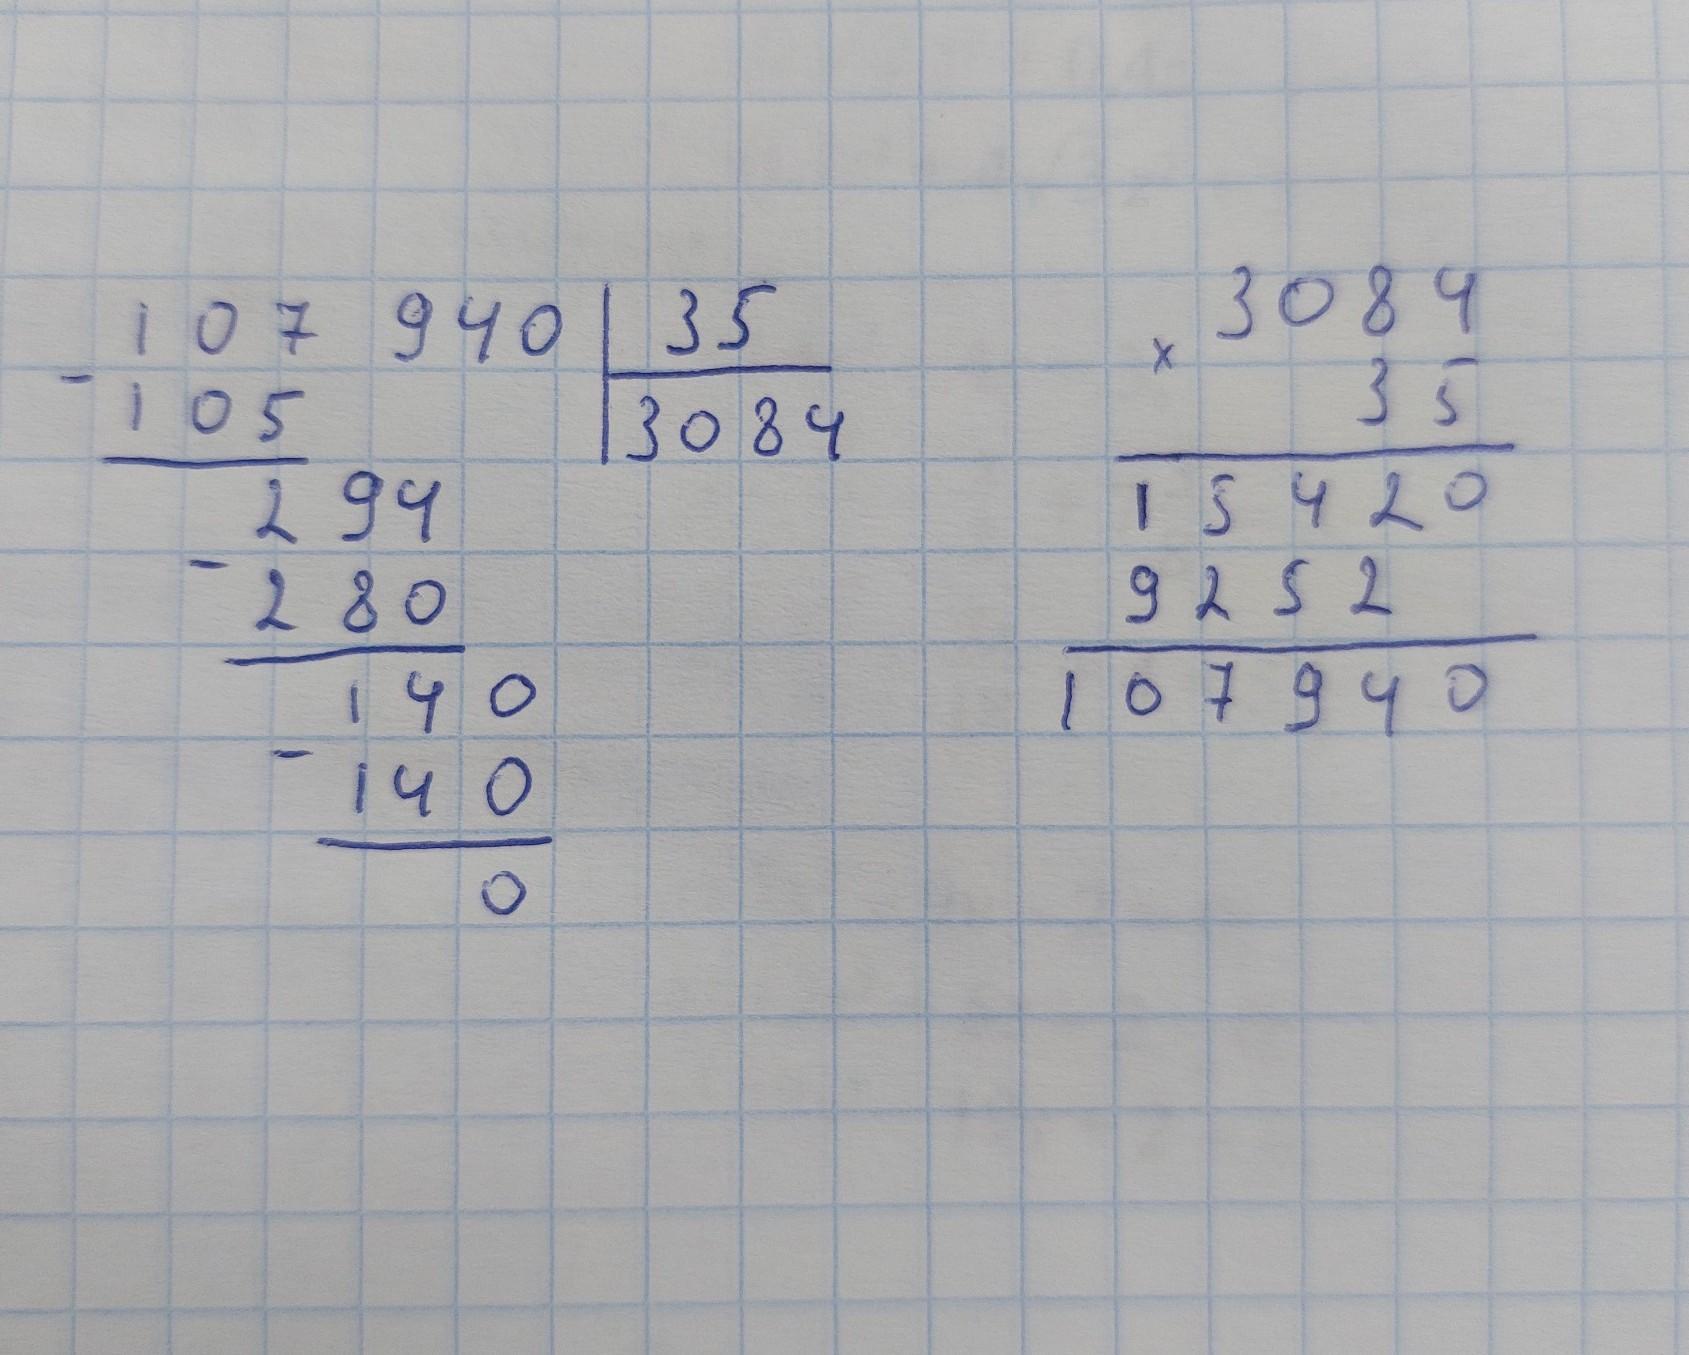 107 940 | 35
- 105 | 3084
294
- 280
140
- 140
0
3084
× 35
15420
9252
107940